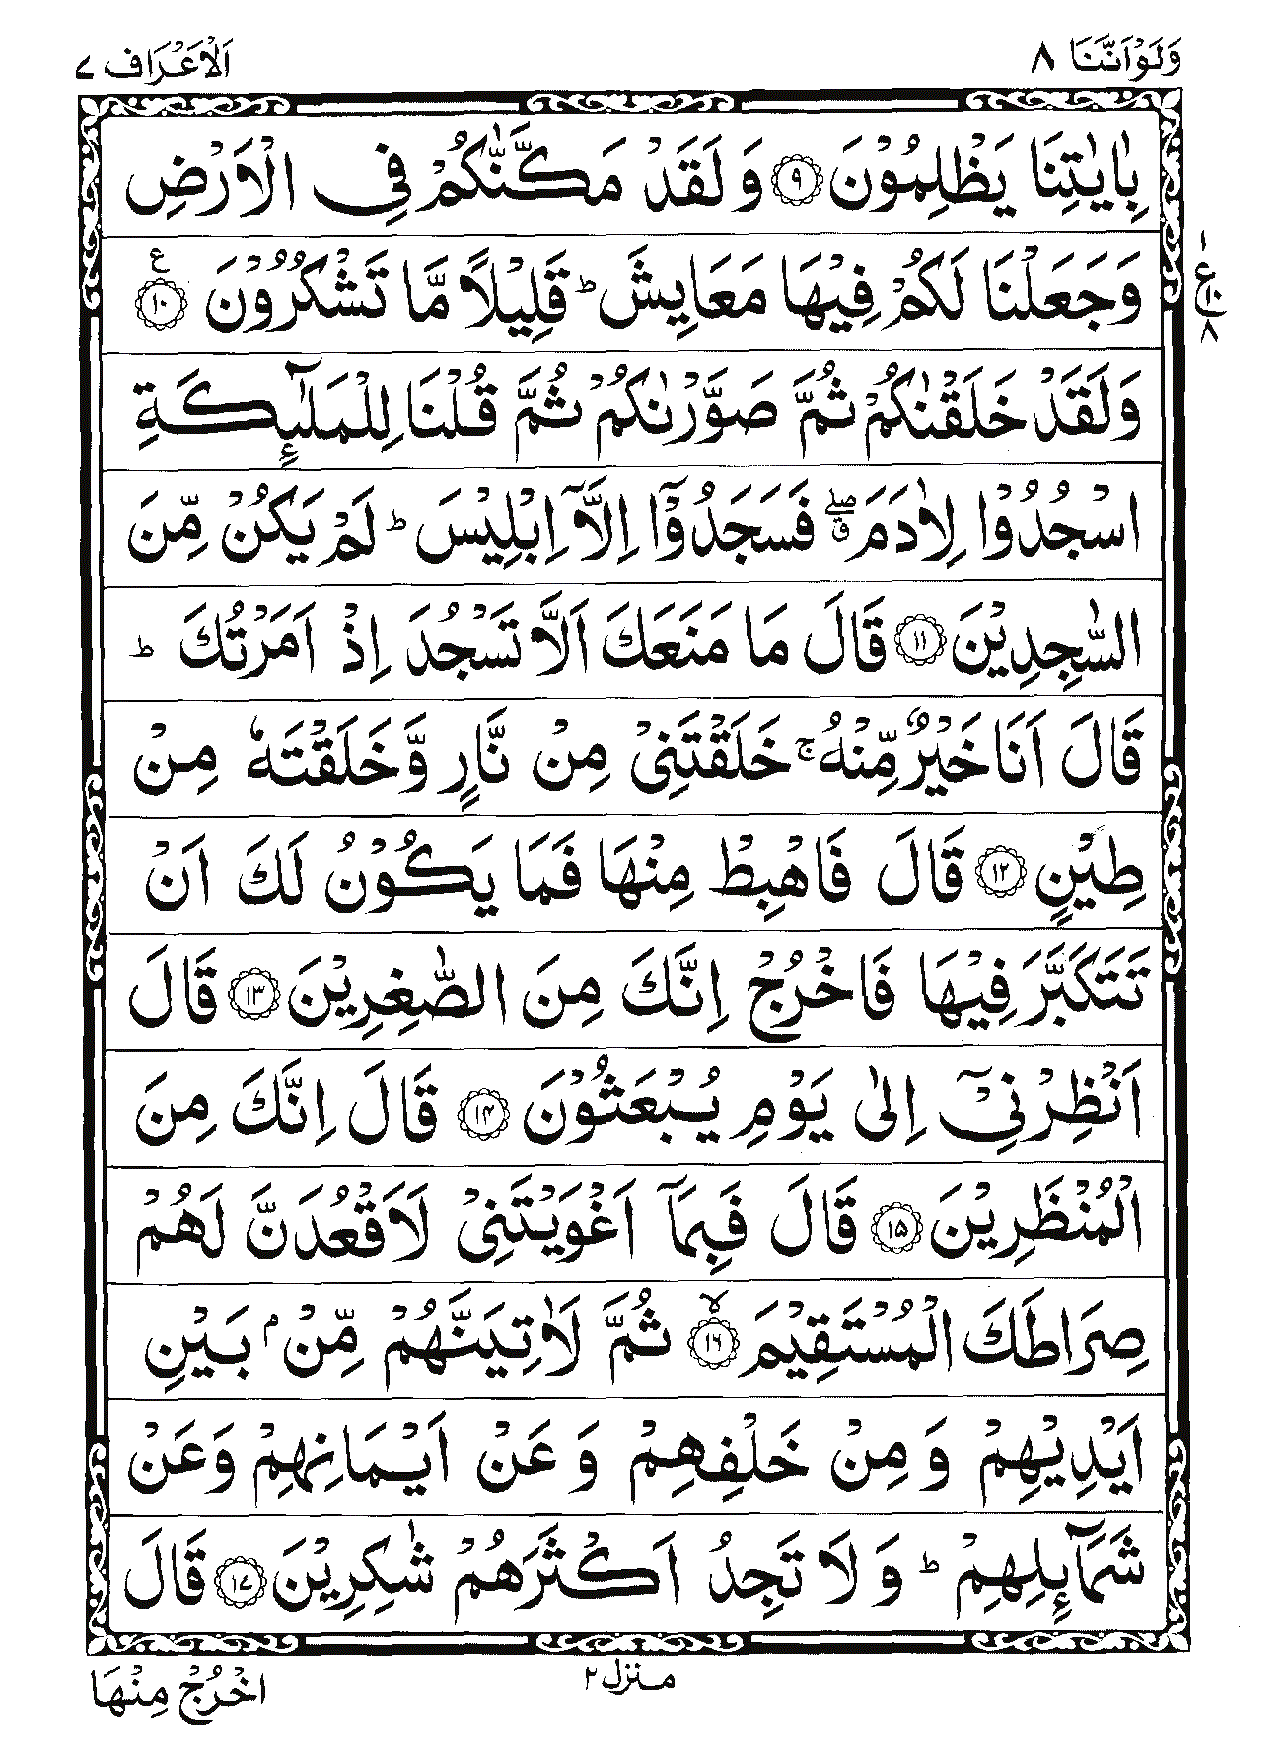 وَلَوْاَنَّنَا ٨
اَلْاَعْرَاف ٧
بِاٰيٰتِنَا يَظْلِمُوْنَ ۹ وَلَقَدْ مَكَّنّٰكُمْ فِي الْاَرْضِ
وَجَعَلْنَا لَكُمْ فِيْهَا مَعَايِشَ ؕ قَلِيْلًا مَّا تَشْكُرُوْنَ ع ۱۰
۱
ع
۱۰
۸
وَلَقَدْ خَلَقْنٰكُمْ ثُمَّ صَوَّرْنٰكُمْ ثُمَّ قُلْنَا لِلْمَلٰٓئِكَةِ
اسْجُدُوْا لِاٰدَمَ ۖق فَسَجَدُوْٓا اِلَّآ اِبْلِيْسَ ؕ لَمْ يَكُنْ مِّنَ
السّٰجِدِيْنَ ۱۱ قَالَ مَا مَنَعَكَ اَلَّا تَسْجُدَ اِذْ اَمَرْتُكَ ؕ
قَالَ اَنَا خَيْرٌ مِّنْهُ ۚ خَلَقْتَنِيْ مِنْ نَّارٍ وَّخَلَقْتَهٗ مِنْ
طِيْنٍ ۱۲ قَالَ فَاهْبِطْ مِنْهَا فَمَا يَكُوْنُ لَكَ اَنْ
تَتَكَبَّرَ فِيْهَا فَاخْرُجْ اِنَّكَ مِنَ الصّٰغِرِيْنَ ۱۳ قَالَ
اَنْظِرْنِيْٓ اِلٰى يَوْمِ يُبْعَثُوْنَ ۱۴ قَالَ اِنَّكَ مِنَ
الْمُنْظَرِيْنَ ۱۵ قَالَ فَبِمَآ اَغْوَيْتَنِيْ لَاَقْعُدَنَّ لَهُمْ
صِرَاطَكَ الْمُسْتَقِيْمَ ۙ ۱۶ ثُمَّ لَاٰتِيَنَّهُمْ مِّنْۢ بَيْنِ
اَيْدِيْهِمْ وَمِنْ خَلْفِهِمْ وَعَنْ اَيْمَانِهِمْ وَعَنْ
شَمَآئِلِهِمْ ؕ وَلَا تَجِدُ اَكْثَرَهُمْ شٰكِرِيْنَ ۱۷ قَالَ
منزل ۲
اخْرُجْ مِنْهَا